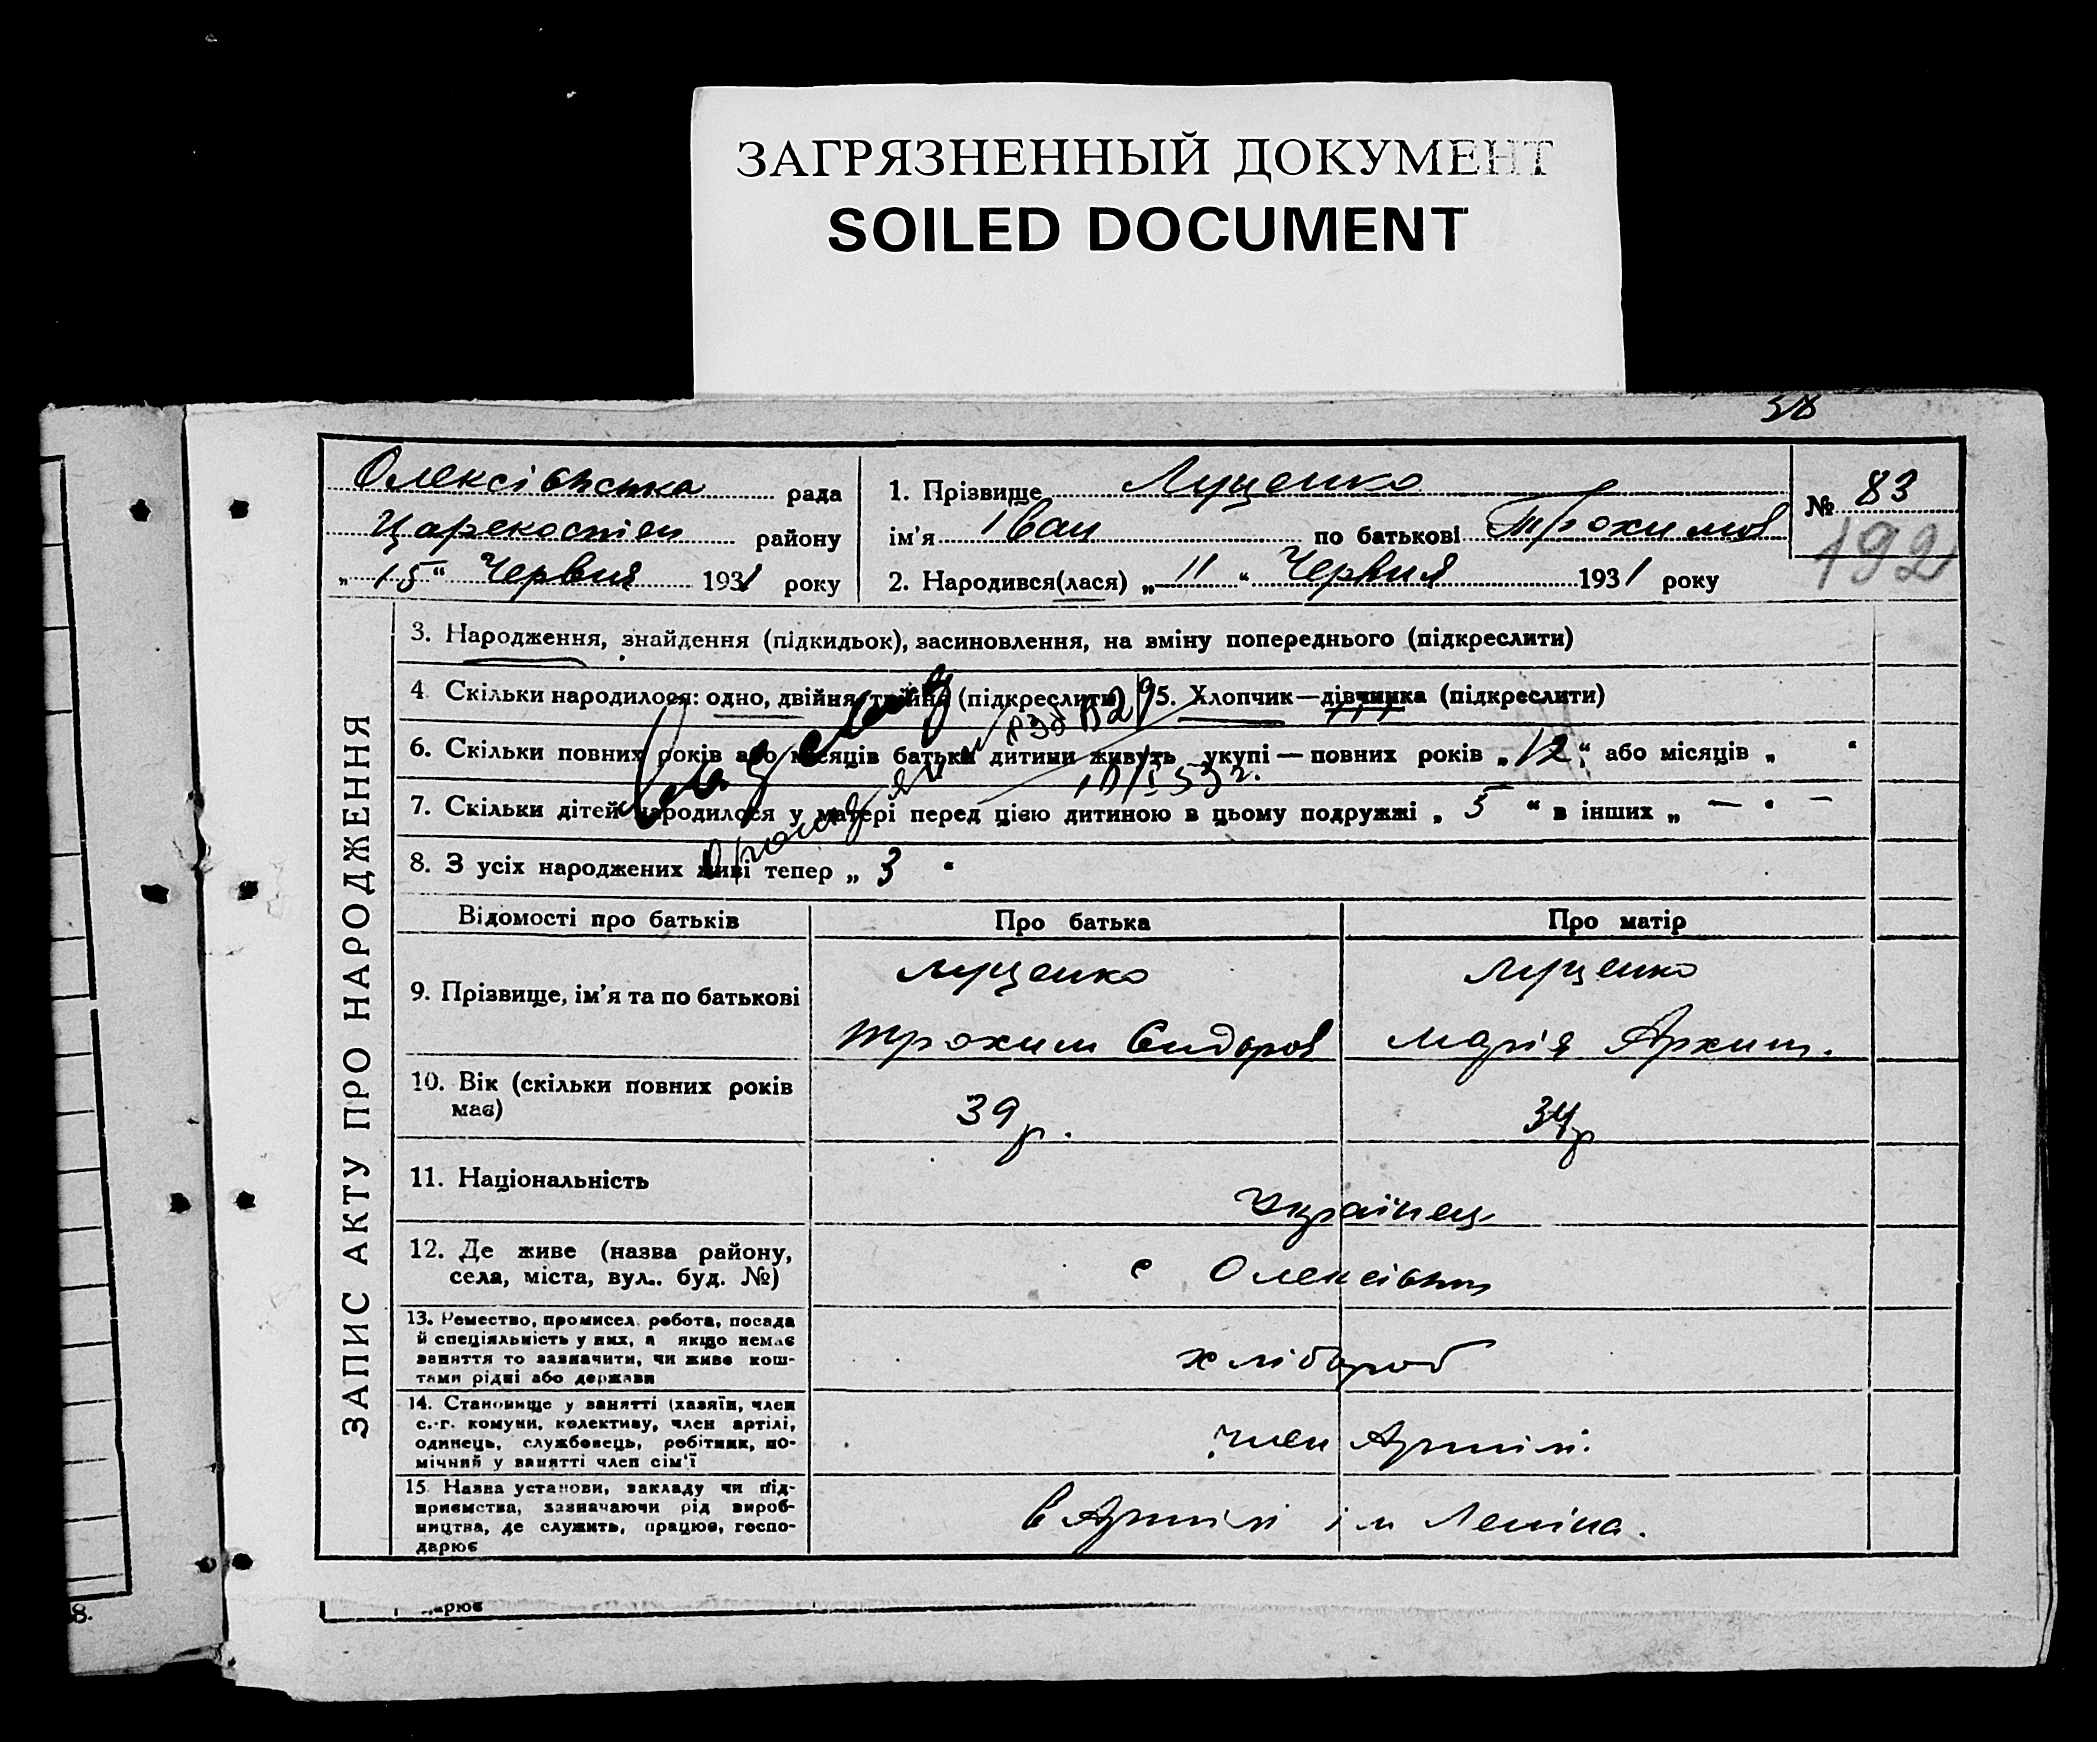 ЗАГРЯЗНЕННЫЙ ДОКУМЕНТ
SOILED DOCUMENT
58
Олексіївська рада
Царекостян району
„ 15 “ Червня 1931 року
1. Прізвище Луценко
ім'я Іван по батькові Трохимов
2. Народився(лася) „ 11 “ Червня 1931 року
№ 83
192
ЗАПИС АКТУ ПРО НАРОДЖЕННЯ
3. Народження, знайдення (підкидьок), засиновлення, на зміну попереднього (підкреслити)
4. Скільки народилося: одно, двійня, трійня (підкреслити) 5. Хлопчик—дівчинка (підкреслити)
6. Скільки повних років або місяців батьки дитини живуть укупі — повних років „ 12 “ або місяців „ “
7. Скільки дітей народилося у матері перед цією дитиною в цьому подружжі „ 5 “ в інших „ — “ —
8. З усіх народжених живі тепер „ 3 “
Відомості про батьків Про батька Про матір
9. Прізвище, ім'я та по батькові
Луценко
Трохим Сидоров
Луценко
Марія Архип.
10. Вік (скільки повних років
має)
39 р.
34 р
11. Національність
Українец
12. Де живе (назва району,
села, міста, вул.. буд. №)
с Олексіївка
13. Ремество, промисел. робота, посада
й спеціяльність у них, а якщо немає
заняття то зазначити, чи живе кош-
тами рідні або держави
хлібороб
14. Становище у занятті (хазяїн, член
с.-г. комуни, колективу, член артілі,
одинець, службовець, робітник, по-
мічний у занятті член сім'ї
член Артілі.
15. Назва установи, закладу чи під-
приємства, зазначаючи рід вироб-
ництва, де служить, працює, госпо-
дарює
в Артілі ім Леніна.
арює
8.